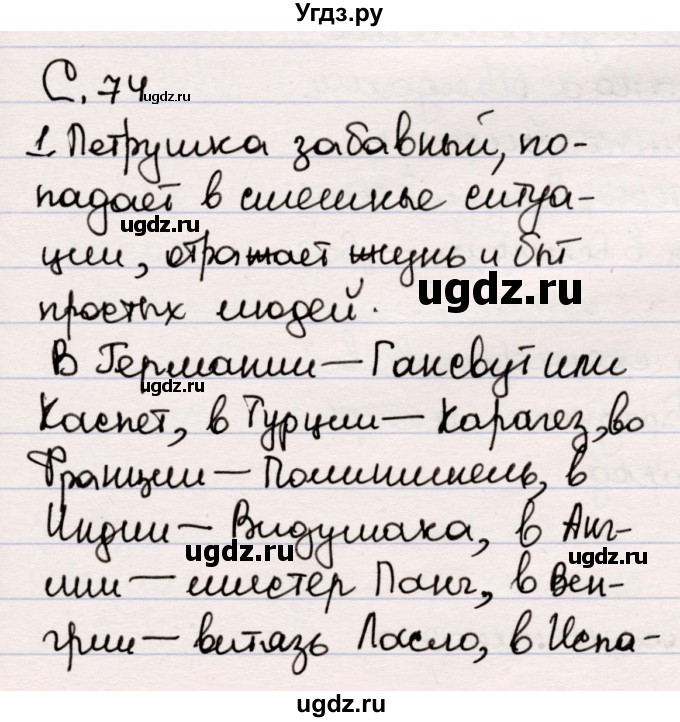 Угдз.ру
С. 74
ugdz.ru
1. Петрушка забавный, по-
падает в смешные ситуа-
ugdz.ru
ции, отражает жизнь и быт
ugdz.ru
простых людей.
ugdz.ru
В Германии — Гансвут или
Каспет, в Турции — Карагез, во
Франции — Полишинель, в
Индии — Видушака, в Анг-
ugdz.ru
ugdz.ru
лии — мистер Панч, в Вен-
грии — витязь Ласло, в Испа-
ugdz.ru